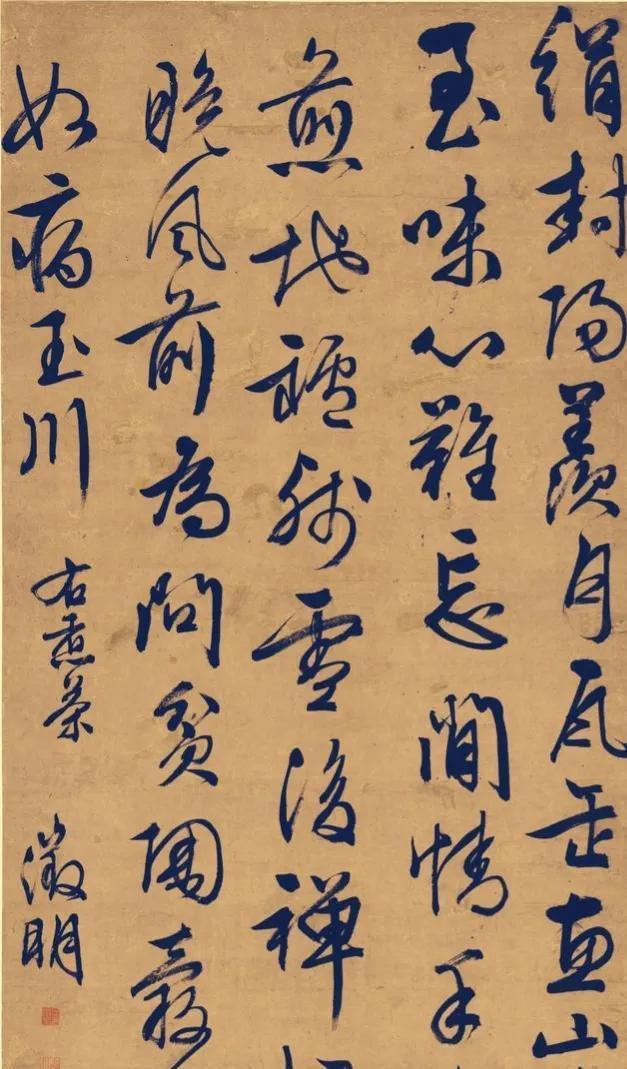 絹封陽羨月瓦缶惠山
至味心難忘閒情手
煎地罏殘雪後禪
晚風前為問貧陶縠
如病玉川
右煮茶
徵明